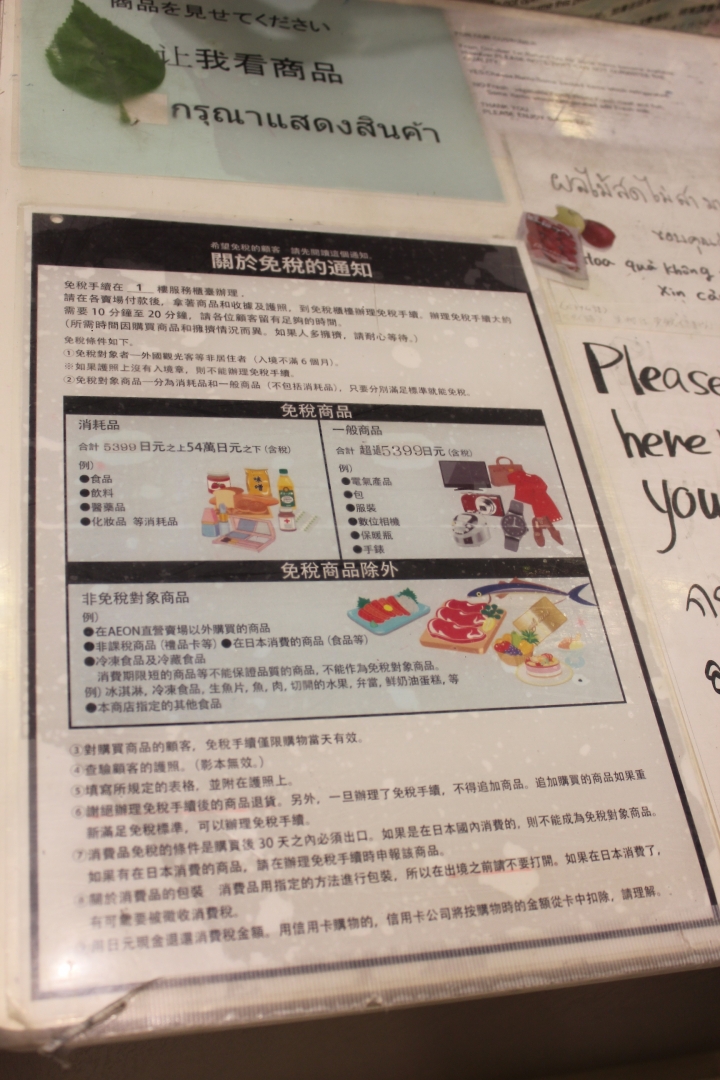 商品を見せてください
让我看商品
กรุณาแสดงสินค้า
THANK YOU
希望免稅的顧客 請先閱讀這個通知。
關於免稅的通知
免稅手續在 1 樓服務櫃臺辦理。
請在各賣場付款後，拿著商品和收據及護照，到免稅櫃檯辦理免稅手續。辦理免稅手續大約
需要 10 分鐘至 20 分鐘，請各位顧客留有足夠的時間。
（所需時間因購買商品和擁擠情況而異。如果人多擁擠，請耐心等待。）
免稅條件如下。
①免稅對象者—外國觀光客等非居住者（入境不滿 6 個月）。
※如果護照上沒有入境章，則不能辦理免稅手續。
②免稅對象商品—分為消耗品和一般商品（不包括消耗品），只要分別滿足標準就能免稅。
免稅商品
消耗品
合計 5399 日元之上54萬日元之下 (含稅)
例)
●食品
●飲料
●醫藥品
●化妝品 等消耗品
一般商品
合計 超過5399日元 (含稅)
例)
●電氣產品
●包
●服裝
●數位相機
●保暖瓶
●手錶
免稅商品除外
非免稅對象商品
例)
●在AEON直營賣場以外購買的商品
●非課稅商品 (禮品卡等) ●在日本消費的商品 (食品等)
●冷凍食品及冷藏食品
消費期限短的商品等不能保證品質的商品, 不能作為免稅對象商品。
例) 冰淇淋, 冷凍食品, 生魚片, 魚, 肉, 切開的水果, 弁當, 鮮奶油蛋糕, 等
●本商店指定的其他食品
③對購買商品的顧客，免稅手續僅限購物當天有效。
④查驗顧客的護照。（影本無效。）
⑤填寫所規定的表格，並附在護照上。
⑥謝絕辦理免稅手續後的商品退貨。另外，一旦辦理了免稅手續，不得追加商品。追加購買的商品如果重
新滿足免稅標準，可以辦理免稅手續。
⑦消費品免稅的條件是購買後 30 天之內必須出口。如果是在日本國內消費的，則不能成為免稅對象商品。
如果有在日本消費的商品，請在辦理免稅手續時申報該商品。
⑧關於消費品的包裝 消費品用指定的方法進行包裝，所以在出境之前請不要打開。如果在日本消費了，
有可能要被徵收消費稅。
用日元現金退還消費稅金額。用信用卡購物的，信用卡公司將按購物時的金額從卡中扣除，請理解。
ผลไม้สดไม่สา
ขอบคุณ
Hoa quả không
Xin cả
Please
here
you